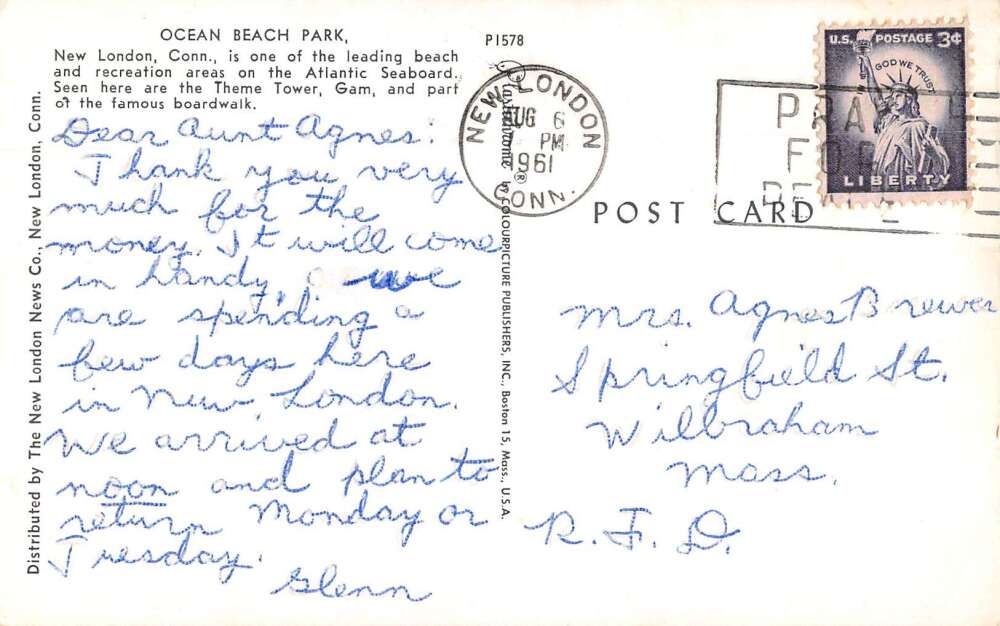 OCEAN BEACH PARK,
New London, Conn., is one of the leading beach
and recreation areas on the Atlantic Seaboard.
Seen here are the Theme Tower, Gam, and part
of the famous boardwalk.
P1578
Dear Aunt Agnes:
Thank you very
much for the
money. It will come
in handy, we
are spending a
few days here
in New London.
We arrived at
noon and plan to
return Monday or
Tuesday.
Glenn
Distributed by The New London News Co., New London, Conn.
Plastichrome ® by COLOURPICTURE PUBLISHERS, INC., Boston 15, Mass., U.S.A.
NEW LONDON
AUG 6
PM
1961
CONN.
PRAY
FOR
U.S. POSTAGE 3¢
IN GOD WE TRUST
LIBERTY
POST CARD
Mrs. Agnes Brewer
Springfield St.
Wilbraham
Mass.
R. F. D.